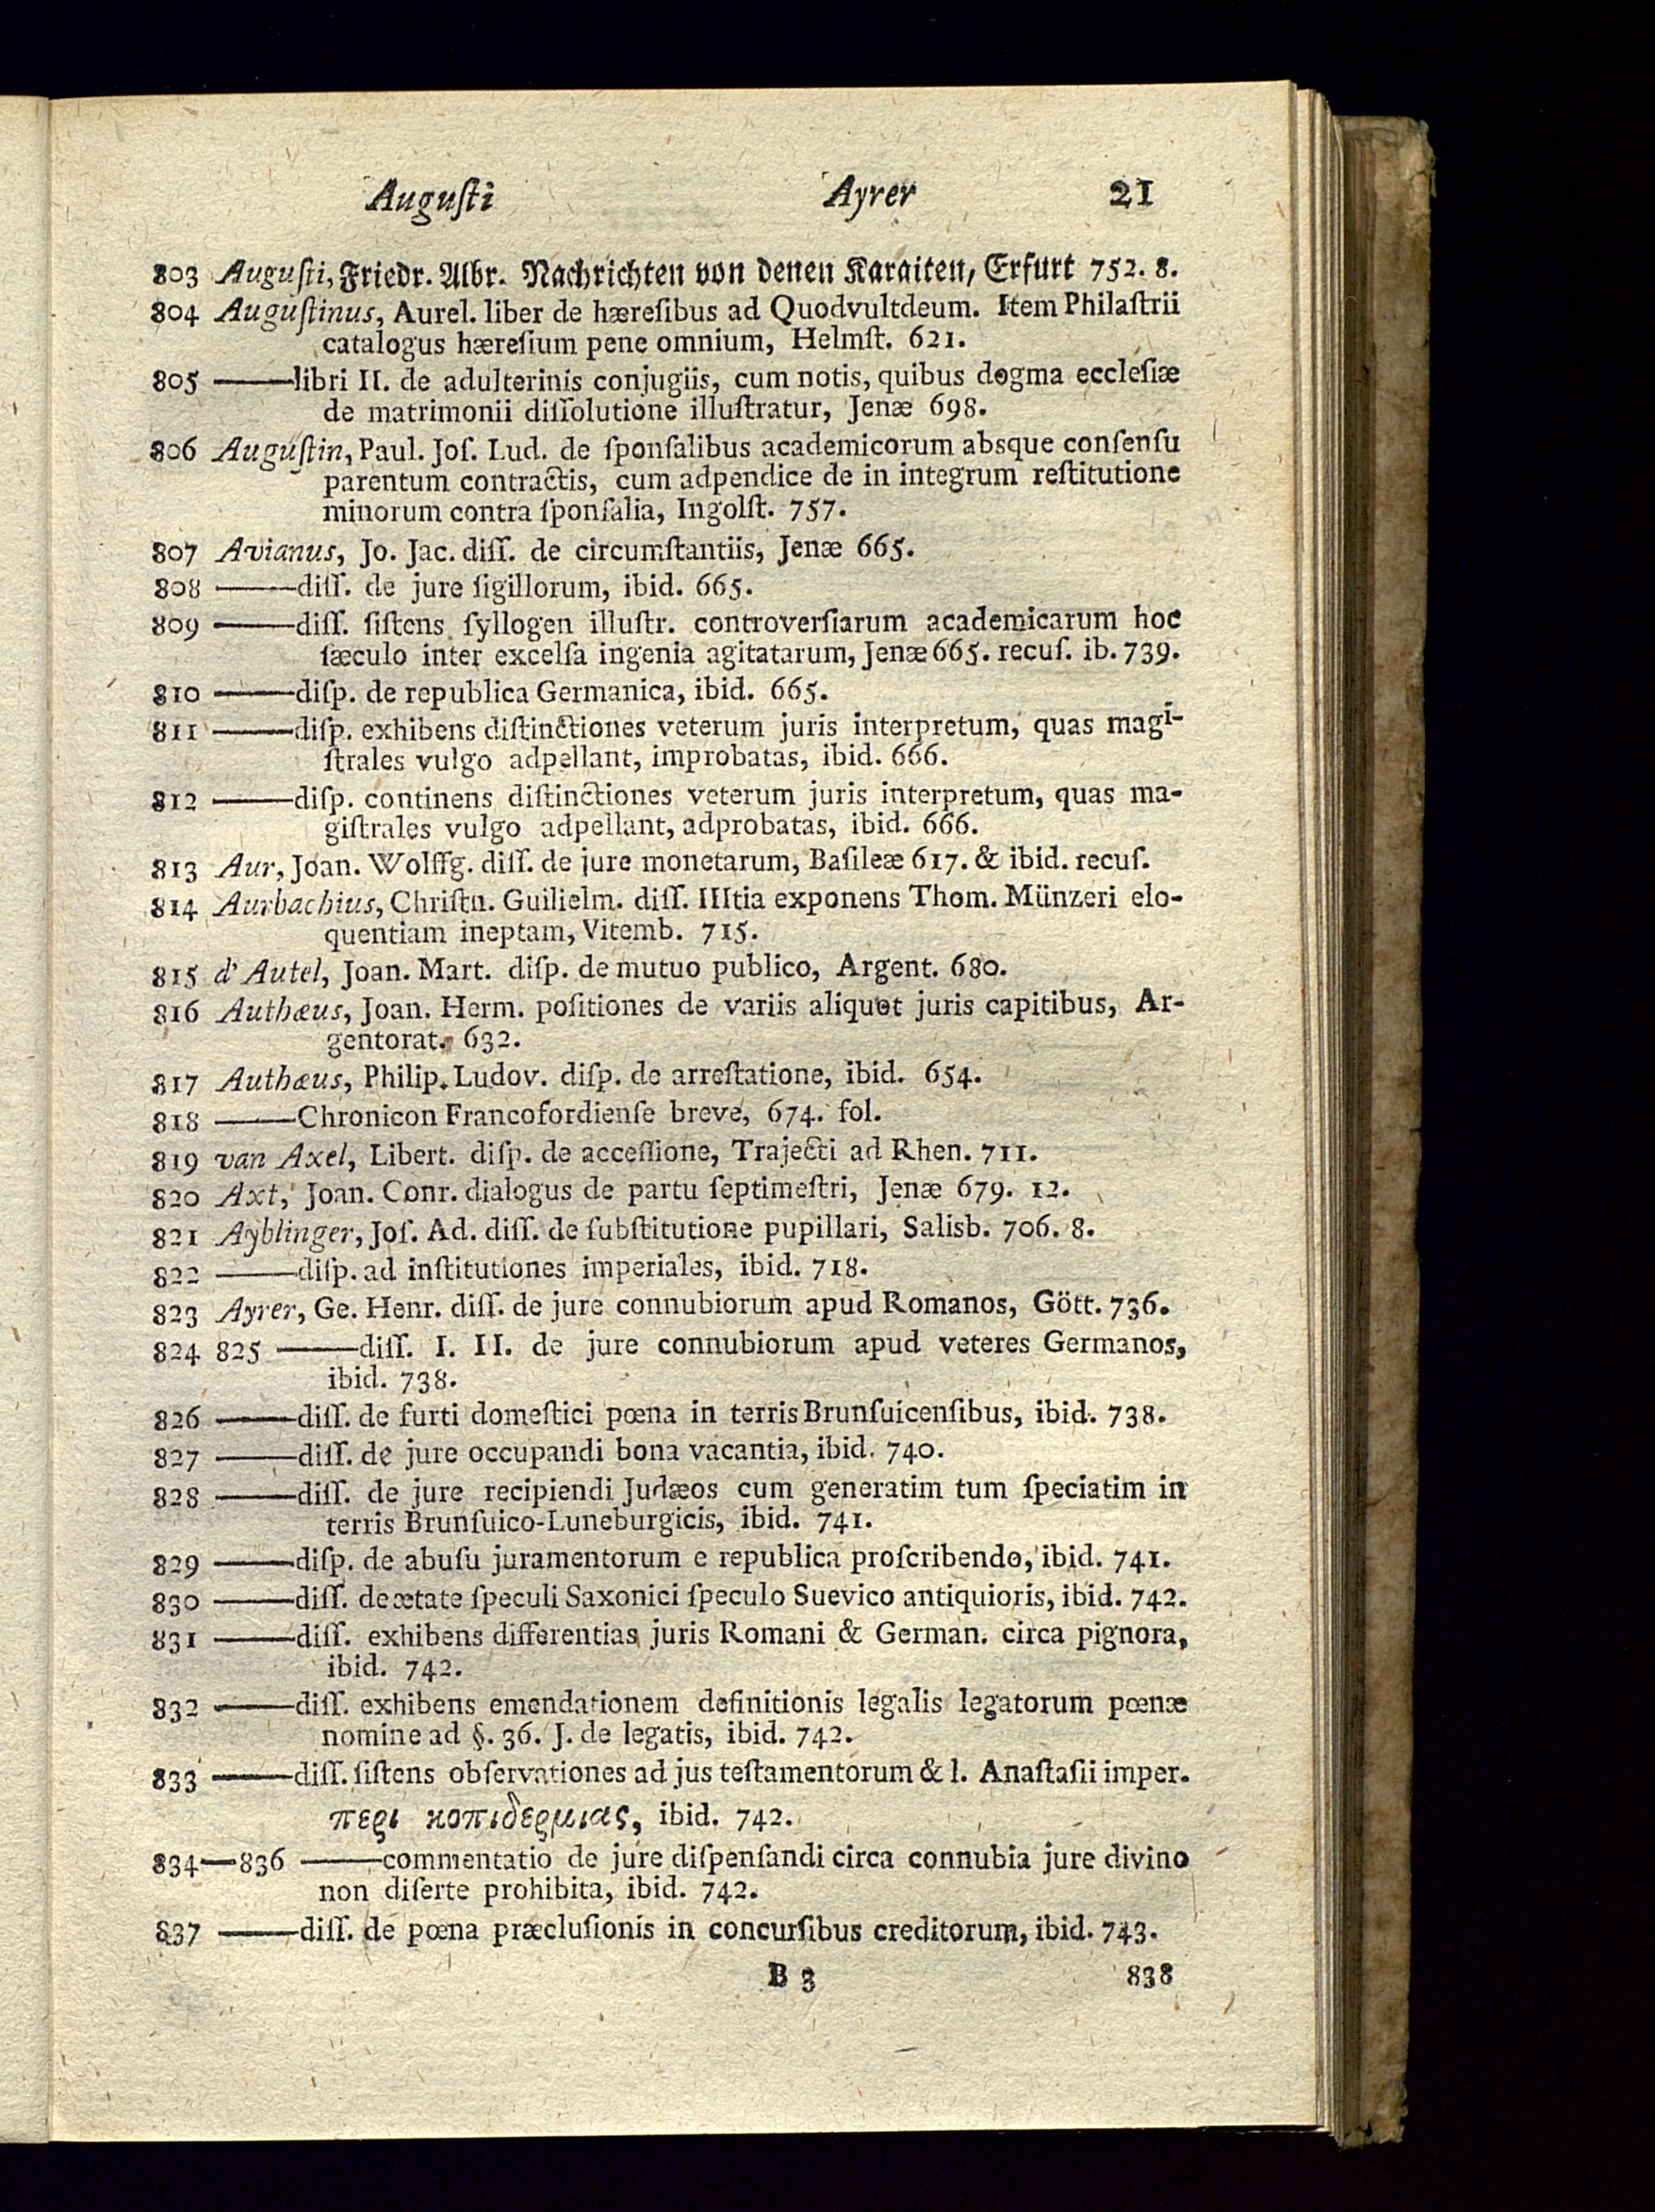 Auguſti Ayrer 21
803 Auguſti, Friedr. Albr. Nachrichten von denen Karaiten, Erfurt 752. 8.
804 Auguſtinus, Aurel. liber de hæreſibus ad Quodvultdeum. Item Philaſtrii
catalogus hæreſium pene omnium, Helmſt. 621.
805 ——libri II. de adulterinis conjugiis, cum notis, quibus dogma eccleſiæ
de matrimonii diſſolutione illuſtratur, Jenæ 698.
806 Auguſtin, Paul. Joſ. Lud. de ſponſalibus academicorum absque conſenſu
parentum contractis, cum adpendice de in integrum reſtitutione
minorum contra ſponſalia, Ingolſt. 757.
807 Avianus, Jo. Jac. diſſ. de circumſtantiis, Jenæ 665.
808 ——diſſ. de jure ſigillorum, ibid. 665.
809 ——diſſ. ſiſtens ſyllogen illuſtr. controverſiarum academicarum hoc
ſæculo inter excelſa ingenia agitatarum, Jenæ 665. recuſ. ib. 739.
810 ——diſp. de republica Germanica, ibid. 665.
811 ——diſp. exhibens diſtinctiones veterum juris interpretum, quas magi-
ſtrales vulgo adpellant, improbatas, ibid. 666.
812 ——diſp. continens diſtinctiones veterum juris interpretum, quas ma-
giſtrales vulgo adpellant, adprobatas, ibid. 666.
813 Aur, Joan. Wolffg. diſſ. de jure monetarum, Baſileæ 617. & ibid. recuſ.
814 Aurbachius, Chriſtn. Guilielm. diſſ. IIItia exponens Thom. Münzeri elo-
quentiam ineptam, Vitemb. 715.
815 d' Autel, Joan. Mart. diſp. de mutuo publico, Argent. 680.
816 Authæus, Joan. Herm. poſitiones de variis aliquot juris capitibus, Ar-
gentorat. 632.
817 Authæus, Philip. Ludov. diſp. de arreſtatione, ibid. 654.
818 ——Chronicon Francofordienſe breve, 674. fol.
819 van Axel, Libert. diſp. de acceſſione, Trajecti ad Rhen. 711.
820 Axt, Joan. Conr. dialogus de partu ſeptimeſtri, Jenæ 679. 12.
821 Ayblinger, Joſ. Ad. diſſ. de ſubſtitutione pupillari, Salisb. 706. 8.
822 ——diſp. ad inſtitutiones imperiales, ibid. 718.
823 Ayrer, Ge. Henr. diſſ. de jure connubiorum apud Romanos, Gött. 736.
824 825 ——diſſ. I. II. de jure connubiorum apud veteres Germanos,
ibid. 738.
826 ——diſſ. de furti domeſtici pœna in terris Brunſuicenſibus, ibid. 738.
827 ——diſſ. de jure occupandi bona vacantia, ibid. 740.
828 ——diſſ. de jure recipiendi Judæos cum generatim tum ſpeciatim in
terris Brunſuico-Luneburgicis, ibid. 741.
829 ——diſp. de abuſu juramentorum e republica proſcribendo, ibid. 741.
830 ——diſſ. de ætate ſpeculi Saxonici ſpeculo Suevico antiquioris, ibid. 742.
831 ——diſſ. exhibens differentias juris Romani & German. circa pignora,
ibid. 742.
832 ——diſſ. exhibens emendationem definitionis legalis legatorum pœnæ
nomine ad §. 36. J. de legatis, ibid. 742.
833 ——diſſ. ſiſtens obſervationes ad jus teſtamentorum & l. Anaſtaſii imper.
περι κοπιδερμιας, ibid. 742.
834—836 ——commentatio de jure diſpenſandi circa connubia jure divino
non diſerte prohibita, ibid. 742.
837 ——diſſ. de pœna præcluſionis in concurſibus creditorum, ibid. 743.
B 3 838